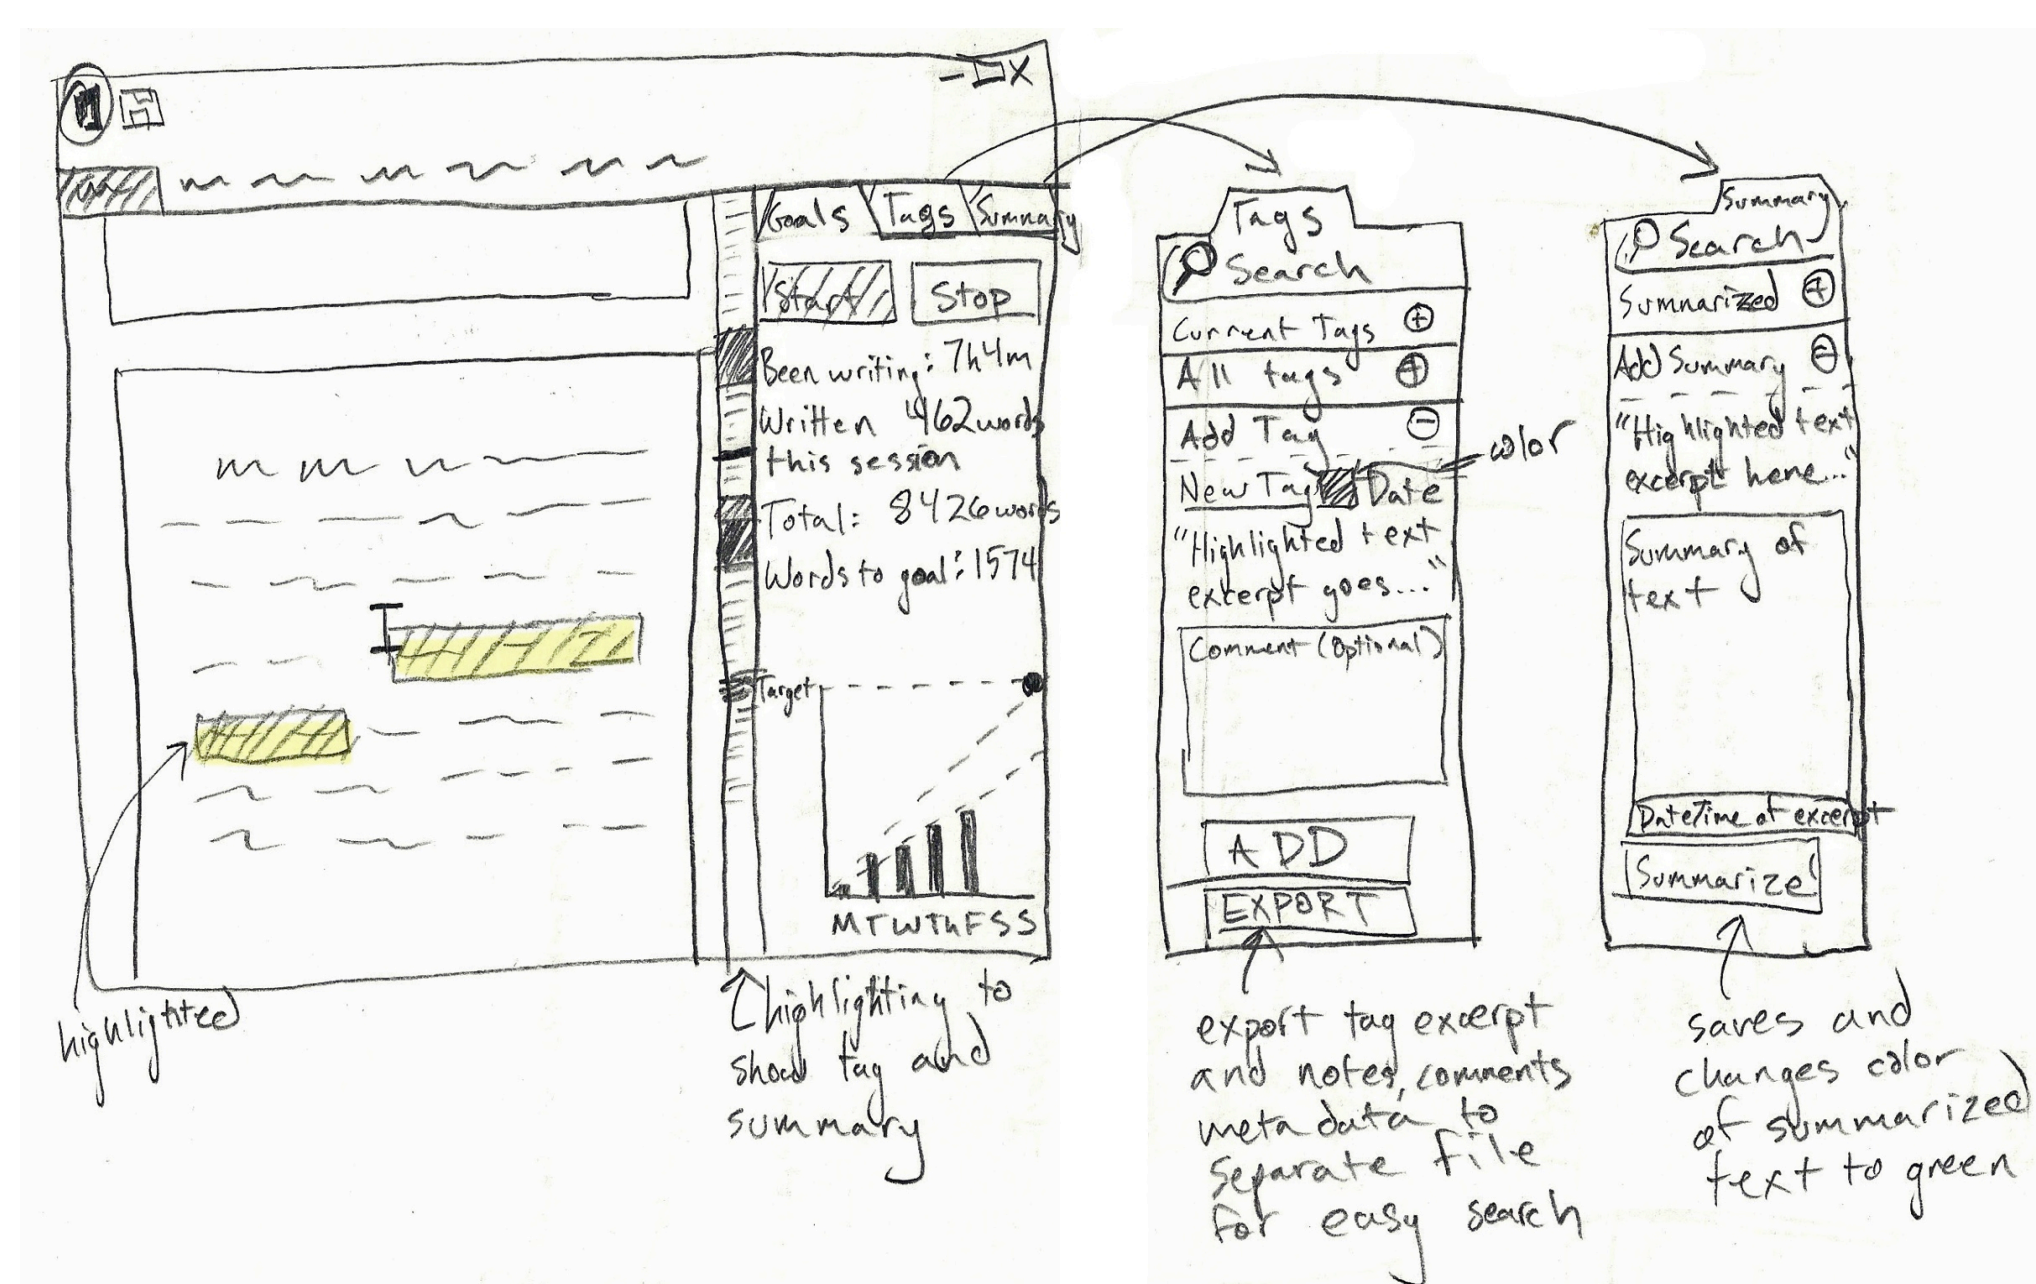 Goals Tags Summary
Start Stop
Been writing: 7h4m
Written 462words
this session
Total: 8426words
Words to goal: 1574
Target
M T W Th F S S
highlighted
highlighting to
show tag and
summary
Tags
Search
Current Tags
All tags
Add Tag
color
New Tag Date
"Highlighted text
excerpt goes..."
Comment (Optional)
ADD
EXPORT
export tag excerpt
and notes, comments
metadata to
separate file
for easy search
Summary
Search
Summarized
Add Summary
"Highlighted text
excerpt here..."
Summary of
text
Date/Time of excerpt
Summarize
saves and
changes color
of summarized
text to green